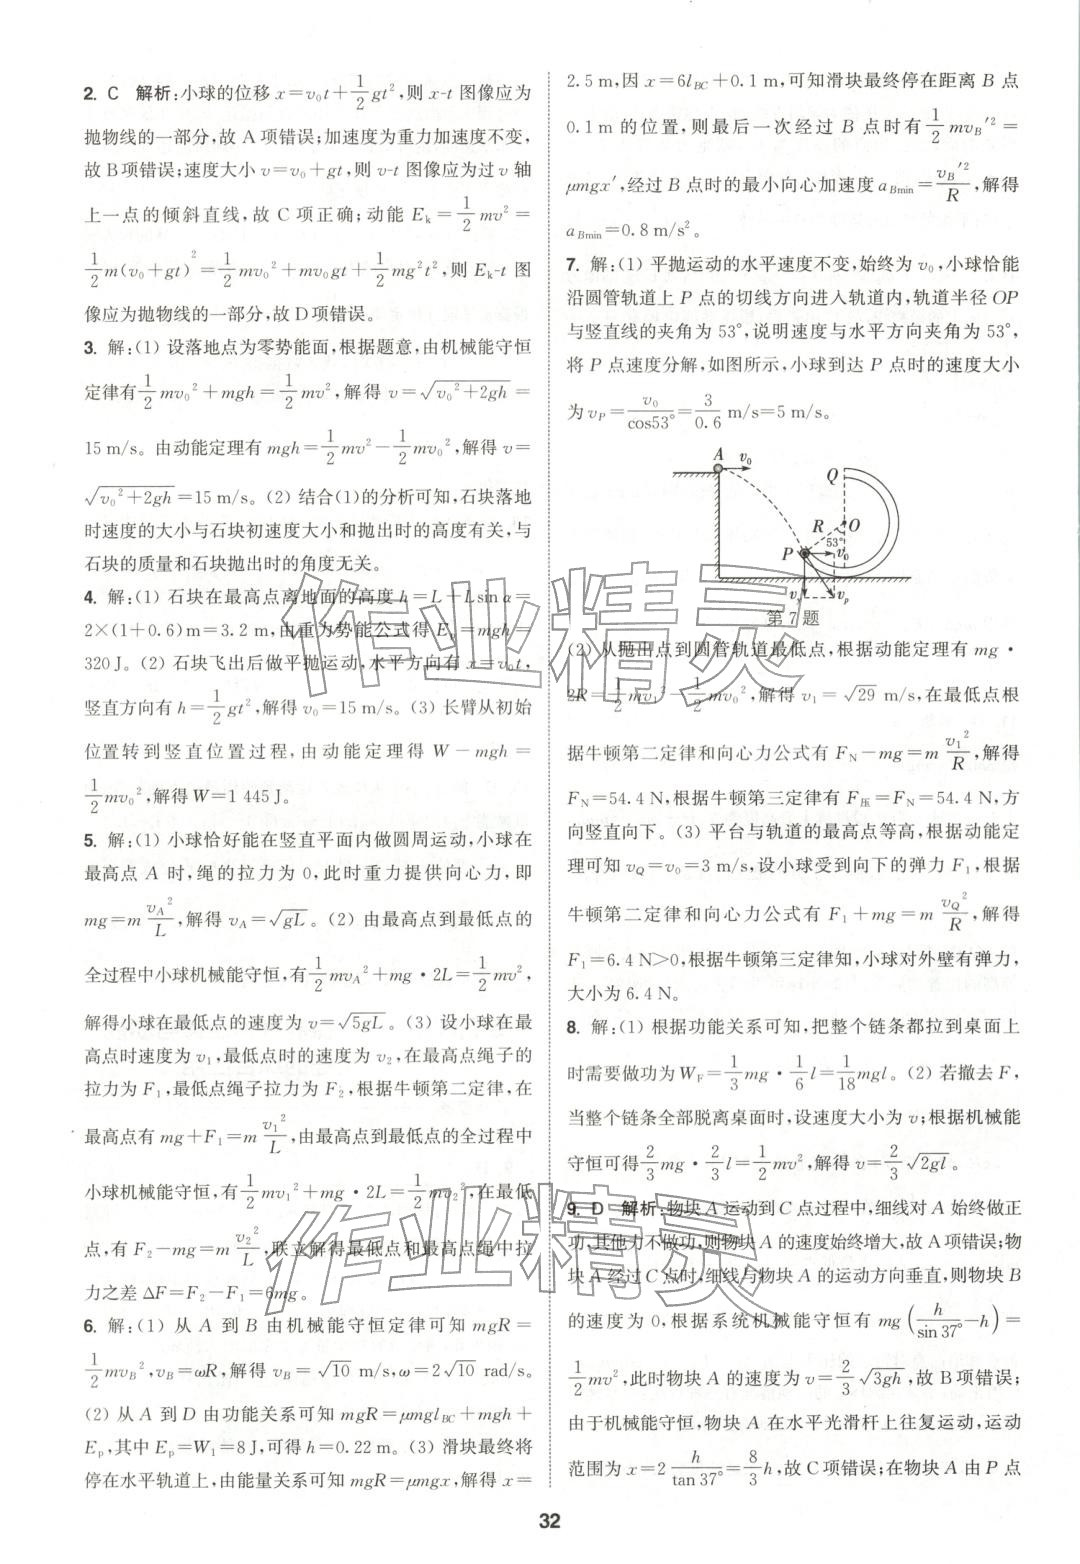 2. C 解析:小球的位移 x=v₀t+1/2 gt²,则 x-t 图像应为
抛物线的一部分,故 A 项错误;加速度为重力加速度不变,
故 B 项错误;速度大小 v=v₀+gt,则 v-t 图像应为过 v 轴
上一点的倾斜直线,故 C 项正确;动能 Eₖ=1/2 mv²=
1/2 m(v₀+gt)²=1/2 mv₀²+mv₀gt+1/2 mg²t²,则 Eₖ-t 图
像应为抛物线的一部分,故 D 项错误。
3. 解:(1) 设落地点为零势能面,根据题意,由机械能守恒
定律有 1/2 mv₀²+mgh=1/2 mv²,解得 v=√(v₀²+2gh)=
15 m/s。由动能定理有 mgh=1/2 mv²-1/2 mv₀²,解得 v=
√(v₀²+2gh)=15 m/s。(2) 结合(1)的分析可知,石块落地
时速度的大小与石块初速度大小和抛出时的高度有关,与
石块的质量和石块抛出时的角度无关。
4. 解:(1) 石块在最高点离地面的高度 h=L+Lsin α=
2×(1+0.6)m=3.2 m,由重力势能公式得 Eₚ=mgh=
320 J。(2) 石块飞出后做平抛运动,水平方向有 x=v₀t,
竖直方向有 h=1/2 gt²,解得 v₀=15 m/s。(3) 长臂从初始
位置转到竖直位置过程,由动能定理得 W-mgh=
1/2 mv₀²,解得 W=1 445 J。
5. 解:(1) 小球恰好能在竖直平面内做圆周运动,小球在
最高点 A 时,绳的拉力为 0,此时重力提供向心力,即
mg=m v_A²/L,解得 v_A=√(gL)。(2) 由最高点到最低点的
全过程中小球机械能守恒,有 1/2 mv_A²+mg·2L=1/2 mv²,
解得小球在最低点的速度为 v=√(5gL)。(3) 设小球在最
高点时速度为 v₁,最低点时的速度为 v₂,在最高点绳子的
拉力为 F₁,最低点绳子拉力为 F₂,根据牛顿第二定律,在
最高点有 mg+F₁=m v₁²/L,由最高点到最低点的全过程中
小球机械能守恒,有 1/2 mv₁²+mg·2L=1/2 mv₂²,在最低
点,有 F₂-mg=m v₂²/L,联立解得最低点和最高点绳中拉
力之差 ΔF=F₂-F₁=6mg。
6. 解:(1) 从 A 到 B 由机械能守恒定律可知 mgR=
1/2 mv_B²,v_B=ωR,解得 v_B=√10 m/s,ω=2√10 rad/s。
(2) 从 A 到 D 由功能关系可知 mgR=μmgl_BC+mgh+
Eₚ,其中 Eₚ=W₁=8 J,可得 h=0.22 m。(3) 滑块最终将
停在水平轨道上,由能量关系可知 mgR=μmgx,解得 x=
2.5 m,因 x=6l_BC+0.1 m,可知滑块最终停在距离 B 点
0.1 m 的位置,则最后一次经过 B 点时有 1/2 mv_B′²=
μmgx′,经过 B 点时的最小向心加速度 a_Bmin=v_B′²/R,解得
a_Bmin=0.8 m/s²。
7. 解:(1) 平抛运动的水平速度不变,始终为 v₀,小球恰能
沿圆管轨道上 P 点的切线方向进入轨道内,轨道半径 OP
与竖直线的夹角为 53°,说明速度与水平方向夹角为 53°,
将 P 点速度分解,如图所示,小球到达 P 点时的速度大小
为 v_P=v₀/cos53°=3/0.6 m/s=5 m/s。
A v₀
Q
R O
53°
P v₀
v_y v_p
第 7 题
(2) 从抛出点到圆管轨道最低点,根据动能定理有 mg·
2R=1/2 mv₁²-1/2 mv₀²,解得 v₁=√29 m/s,在最低点根
据牛顿第二定律和向心力公式有 F_N-mg=m v₁²/R,解得
F_N=54.4 N,根据牛顿第三定律有 F压=F_N=54.4 N,方
向竖直向下。(3) 平台与轨道的最高点等高,根据动能定
理可知 v_Q=v₀=3 m/s,设小球受到向下的弹力 F₁,根据
牛顿第二定律和向心力公式有 F₁+mg=m v_Q²/R,解得
F₁=6.4 N>0,根据牛顿第三定律知,小球对外壁有弹力,
大小为 6.4 N。
8. 解:(1) 根据功能关系可知,把整个链条都拉到桌面上
时需要做功为 W_F=1/3 mg·1/6 l=1/18 mgl。(2) 若撤去 F,
当整个链条全部脱离桌面时,设速度大小为 v;根据机械能
守恒可得 2/3 mg·2/3 l=1/2 mv²,解得 v=2/3 √(2gl)。
9. D 解析:物块 A 运动到 C 点过程中,细线对 A 始终做正
功,其他力不做功,则物块 A 的速度始终增大,故 A 项错误;物
块 A 经过 C 点时,细线与物块 A 的运动方向垂直,则物块 B
的速度为 0,根据系统机械能守恒有 mg(h/sin 37°-h)=
1/2 mv²,此时物块 A 的速度为 v=2/3 √(3gh),故 B 项错误;
由于机械能守恒,物块 A 在水平光滑杆上往复运动,运动
范围为 x=2 h/tan 37°=8/3 h,故 C 项错误;在物块 A 由 P 点
32
作业精灵
作业精灵